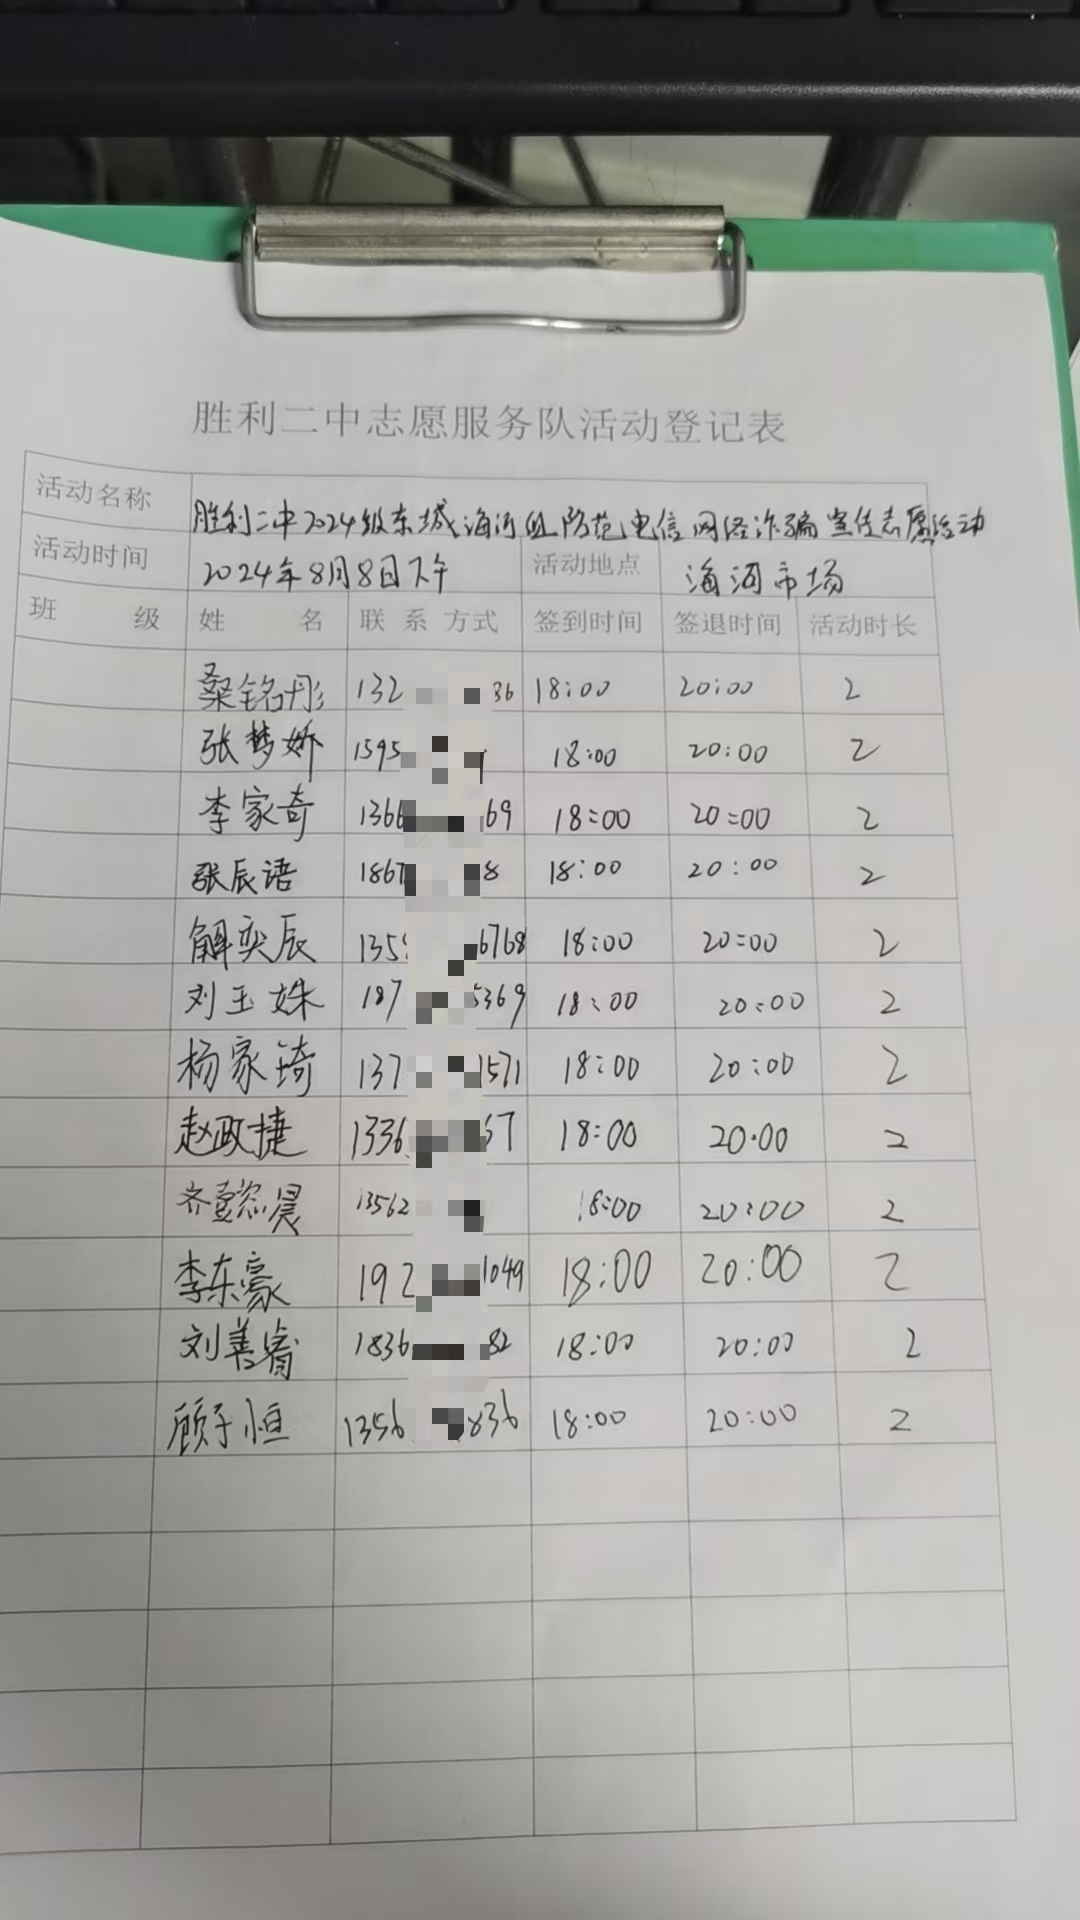 胜利二中志愿服务队活动登记表
活动名称 胜利二中2024级东城海河组防范电信网络诈骗宣传志愿活动
活动时间 2024年8月8日下午 活动地点 海河市场
班 级 姓 名 联 系 方式 签到时间 签退时间 活动时长
桑铭彤 132 36 18:00 20:00 2
张梦娇 1595 18:00 20:00 2
李家奇 1366 69 18:00 20:00 2
张辰语 1867 8 18:00 20:00 2
解奕辰 135 6768 18:00 20:00 2
刘玉姝 187 5369 18:00 20:00 2
杨家琦 137 1571 18:00 20:00 2
赵政捷 1336 57 18:00 20:00 2
齐 晨 13562 18:00 20:00 2
李东豪 192 1049 18:00 20:00 2
刘善睿 1836 82 18:00 20:00 2
顾子恒 1356 836 18:00 20:00 2